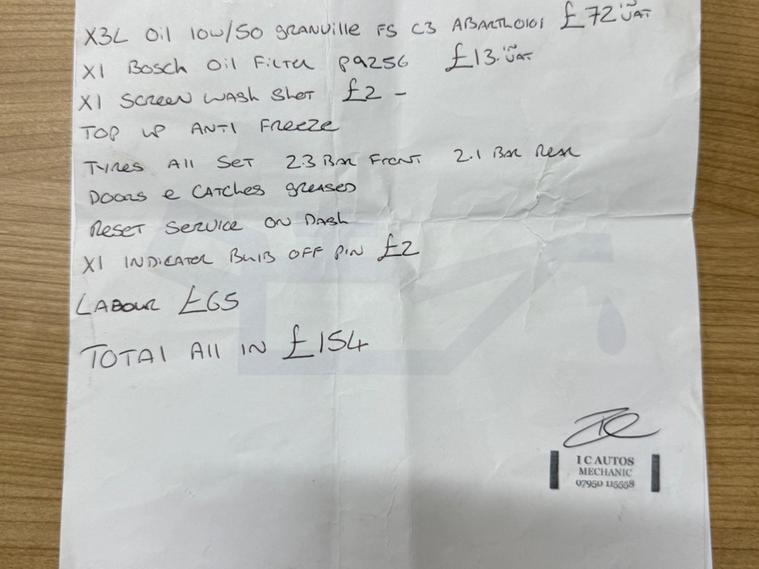 X3L Oil 10W/50 GRANVILLE FS C3 ABARTH0101 £72 in VAT
X1 BOSCH OIL FILTER P9256 £13. in VAT
X1 SCREEN WASH SHOT £2 -
TOP UP ANTI FREEZE
TYRES All SET 2.3 BAR FRONT 2.1 BAR REAR
DOORS & CATCHES GREASED
RESET SERVICE ON DASH
X1 INDICATOR BULB OFF PIN £2
LABOUR £65
TOTAL All IN £154
I C AUTOS
MECHANIC
07950 115558